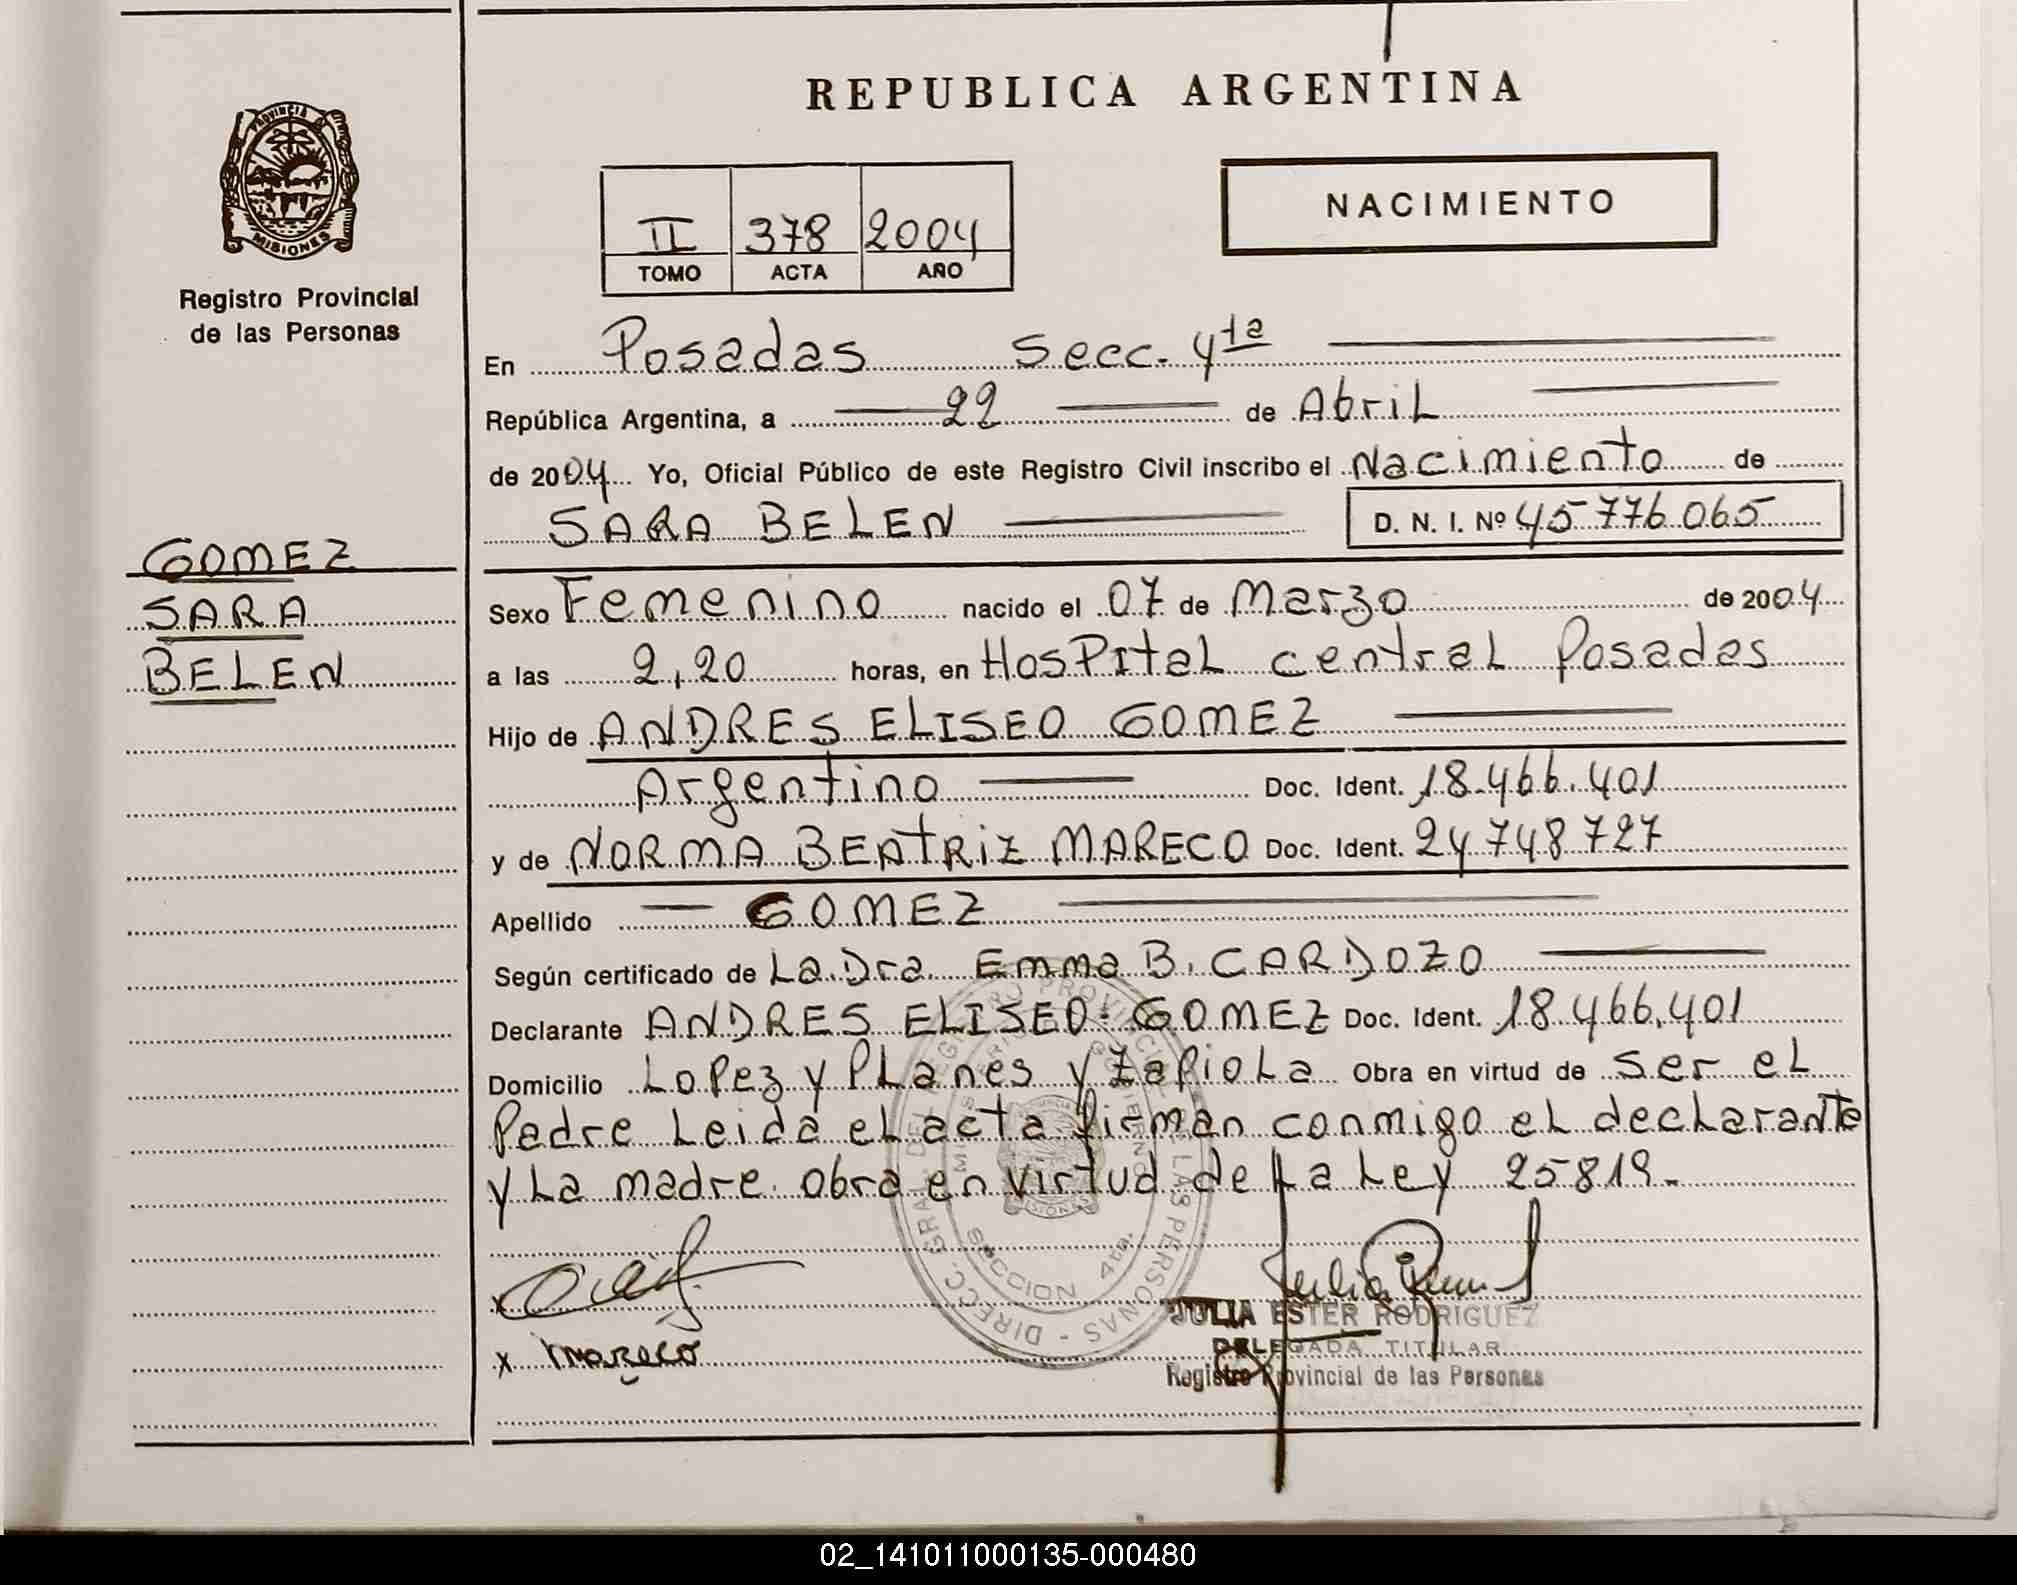 REPUBLICA ARGENTINA
PROVINCIA DE
MISIONES
Registro Provincial
de las Personas
NACIMIENTO
II 378 2004
TOMO ACTA AÑO
En Posadas Secc. 4ta
República Argentina, a 22 de Abril
de 2004 Yo, Oficial Público de este Registro Civil inscribo el Nacimiento de
SARA BELEN D. N. I. Nº 45 776 065
GOMEZ
SARA
BELEN
Sexo Femenino nacido el 07 de Marzo de 2004
a las 2,20 horas, en Hospital central Posadas
Hijo de ANDRES ELISEO GOMEZ
Argentino Doc. Ident. 18.466.401
y de NORMA BEATRIZ MARECO Doc. Ident. 24 748 727
Apellido GOMEZ
Según certificado de La Dra Emma B. CARDOZO
Declarante ANDRES ELISEO GOMEZ Doc. Ident. 18.466.401
Domicilio Lopez y Planes y Zapiola Obra en virtud de ser el
Padre Leida el acta firman conmigo el declarante
y La madre. Obra en virtud de La Ley 25819.-
DIRECC. GRAL. DEL REGISTRO PROVINCIAL DE LAS PERSONAS
SECCION 4ta.
x
x Mareco
JULIA ESTER RODRIGUEZ
DELEGADA TITULAR
Registro Provincial de las Personas
02_141011000135-000480